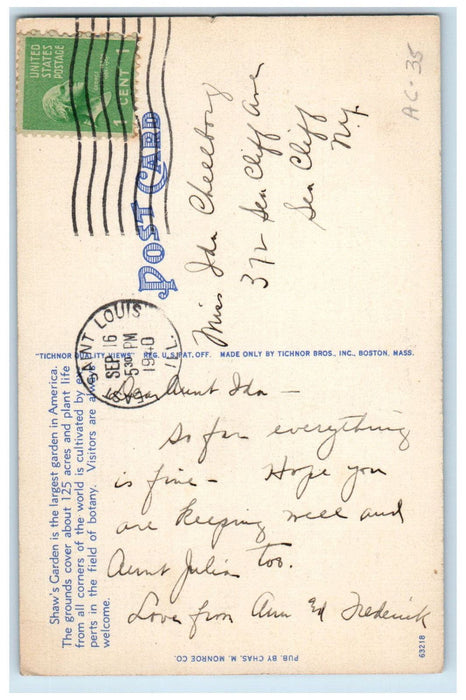 UNITED
STATES
POSTAGE
1 CENT 1
AC-35
POST CARD
Miss Ida
372 Sea Cliff Ave
Sea Cliff
N.Y.
EAST SAINT LOUIS
SEP 16
5 30 PM
1940
ILL.
"TICHNOR QUALITY VIEWS" REG. U.S. PAT. OFF. MADE ONLY BY TICHNOR BROS., INC., BOSTON, MASS.
Shaw's Garden is the largest garden in America.
The grounds cover about 125 acres and plant life
from all corners of the world is cultivated by ex-
perts in the field of botany. Visitors are always
welcome.
Dear Aunt Ida —
So far everything
is fine — Hope you
are keeping well and
Aunt Julia too.
Love from Ann Ed Frederick
PUB. BY CHAS. M. MONROE CO.
63218